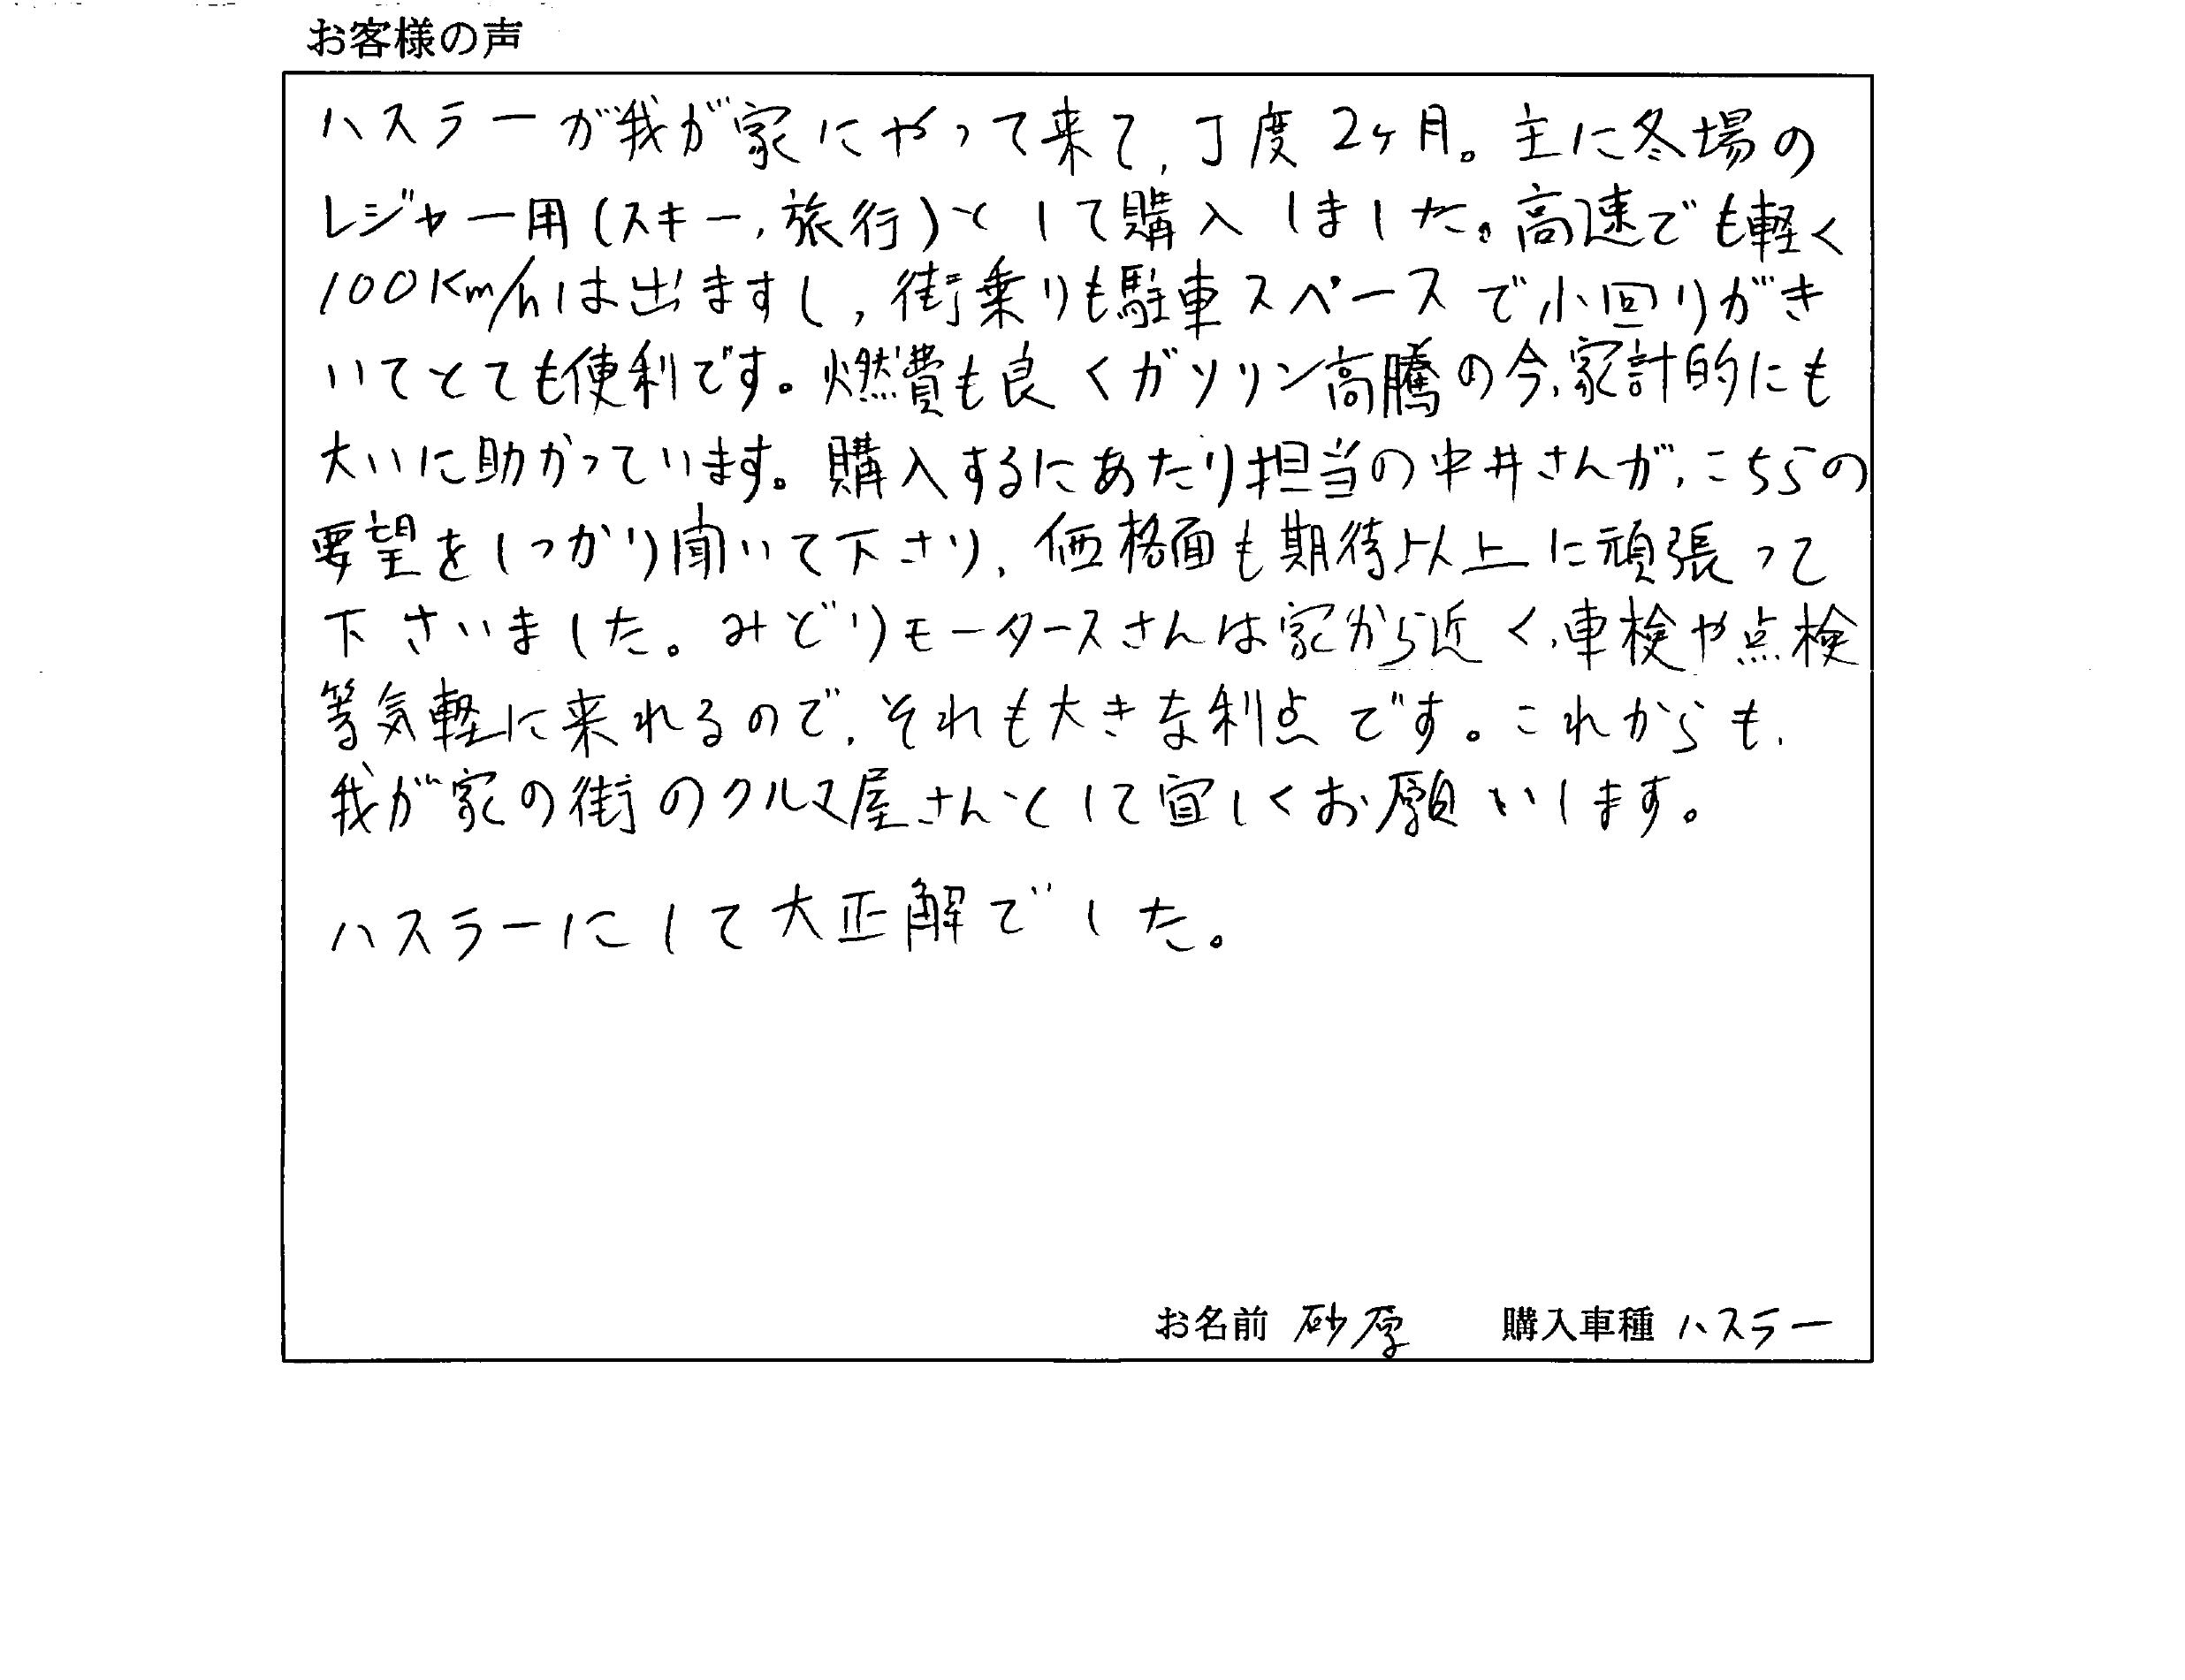 お客様の声
ハスラーが我が家にやって来て、丁度2ヶ月。主に冬場の
レジャー用(スキー、旅行)として購入しました。高速でも軽く
100Km/hは出ますし、街乗りも駐車スペースで小回りがき
いてとても便利です。燃費も良くガソリン高騰の今、家計的にも
大いに助かっています。購入するにあたり担当の中井さんが、こちらの
要望をしっかり聞いて下さり、価格面も期待以上に頑張って
下さいました。みどりモータースさんは家から近く、車検や点検
等気軽に来れるので、それも大きな利点です。これからも、
我が家の街のクルマ屋さんとして宜しくお願いします。
ハスラーにして大正解でした。
お名前 砂原 購入車種 ハスラー